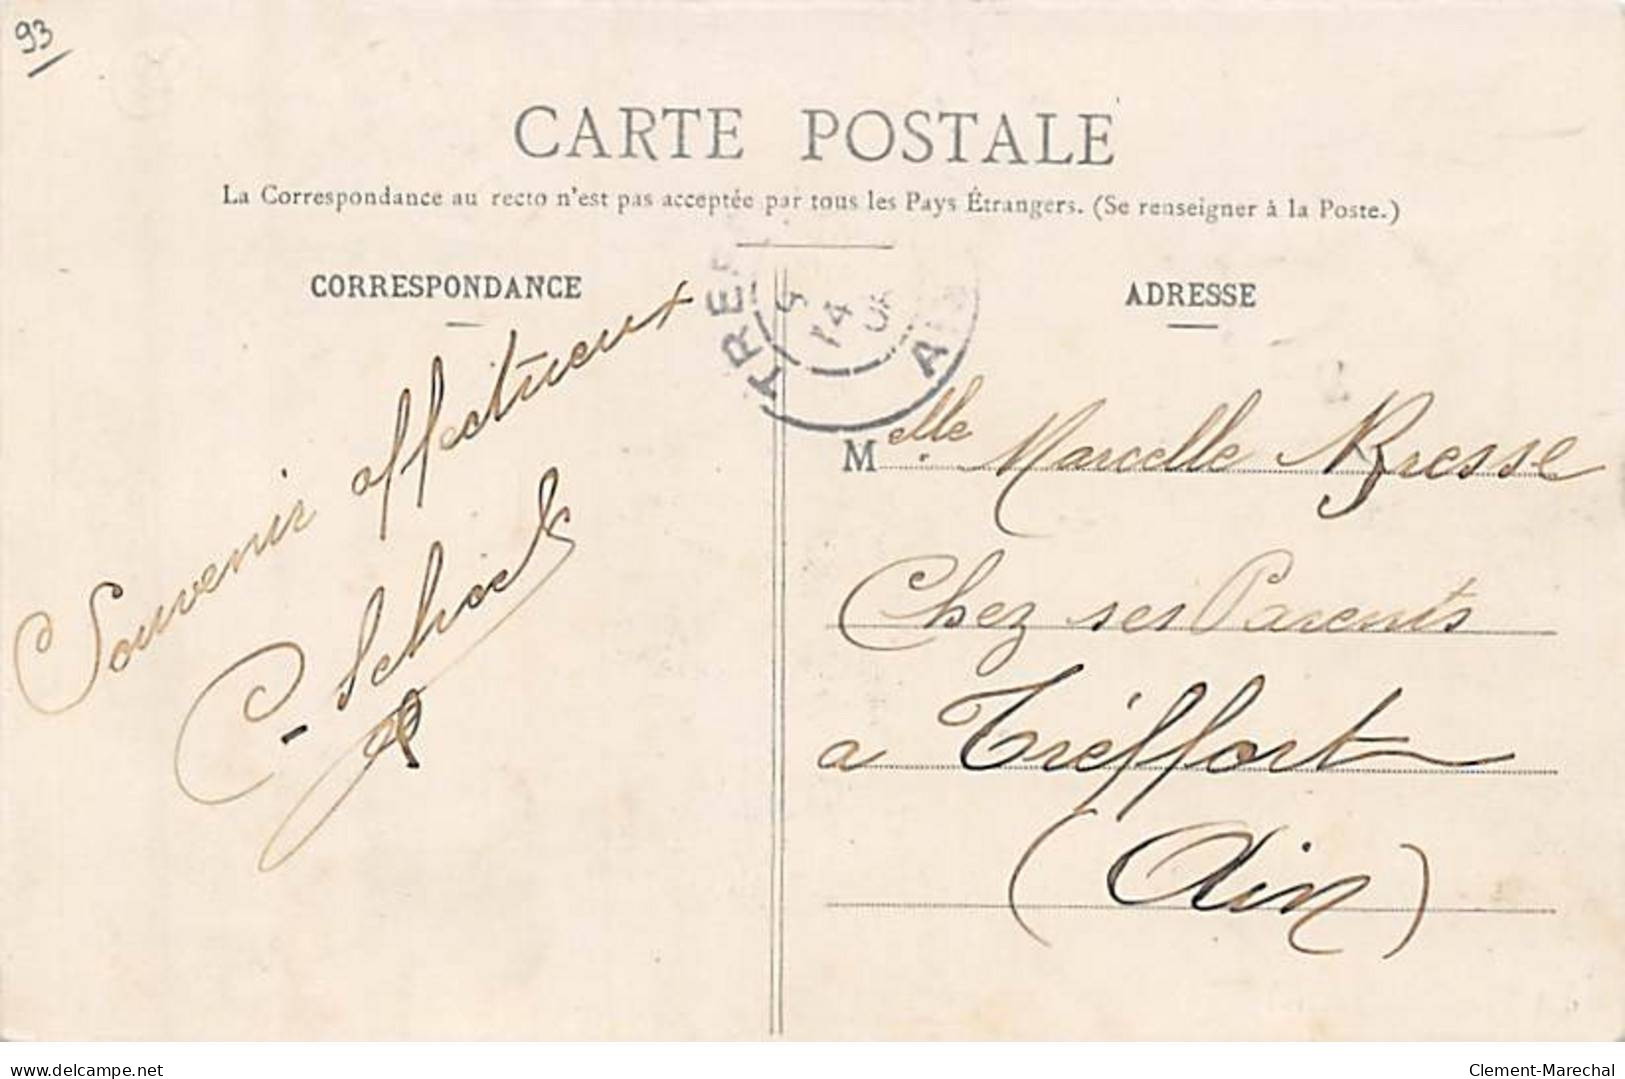 93
CARTE POSTALE
La Correspondance au recto n'est pas acceptée par tous les Pays Étrangers. (Se renseigner à la Poste.)
CORRESPONDANCE
ADRESSE
TRE
14
Souvenir affectueux
Melle Marcelle Bresse
Chez ses Parents
a Tréffort
(Ain)
www.delcampe.net
Clement-Marechal